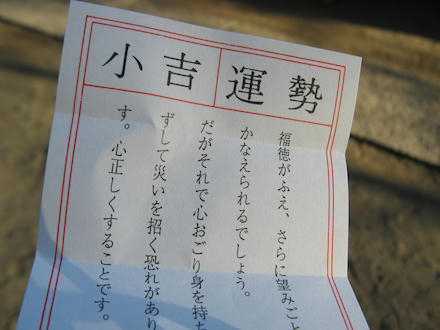 小吉 運勢
福徳がふえ、さらに望みごと
かなえられるでしょう。
だがそれで心おごり身を持ち
ずして災いを招く恐れがあり
す。心正しくすることです。